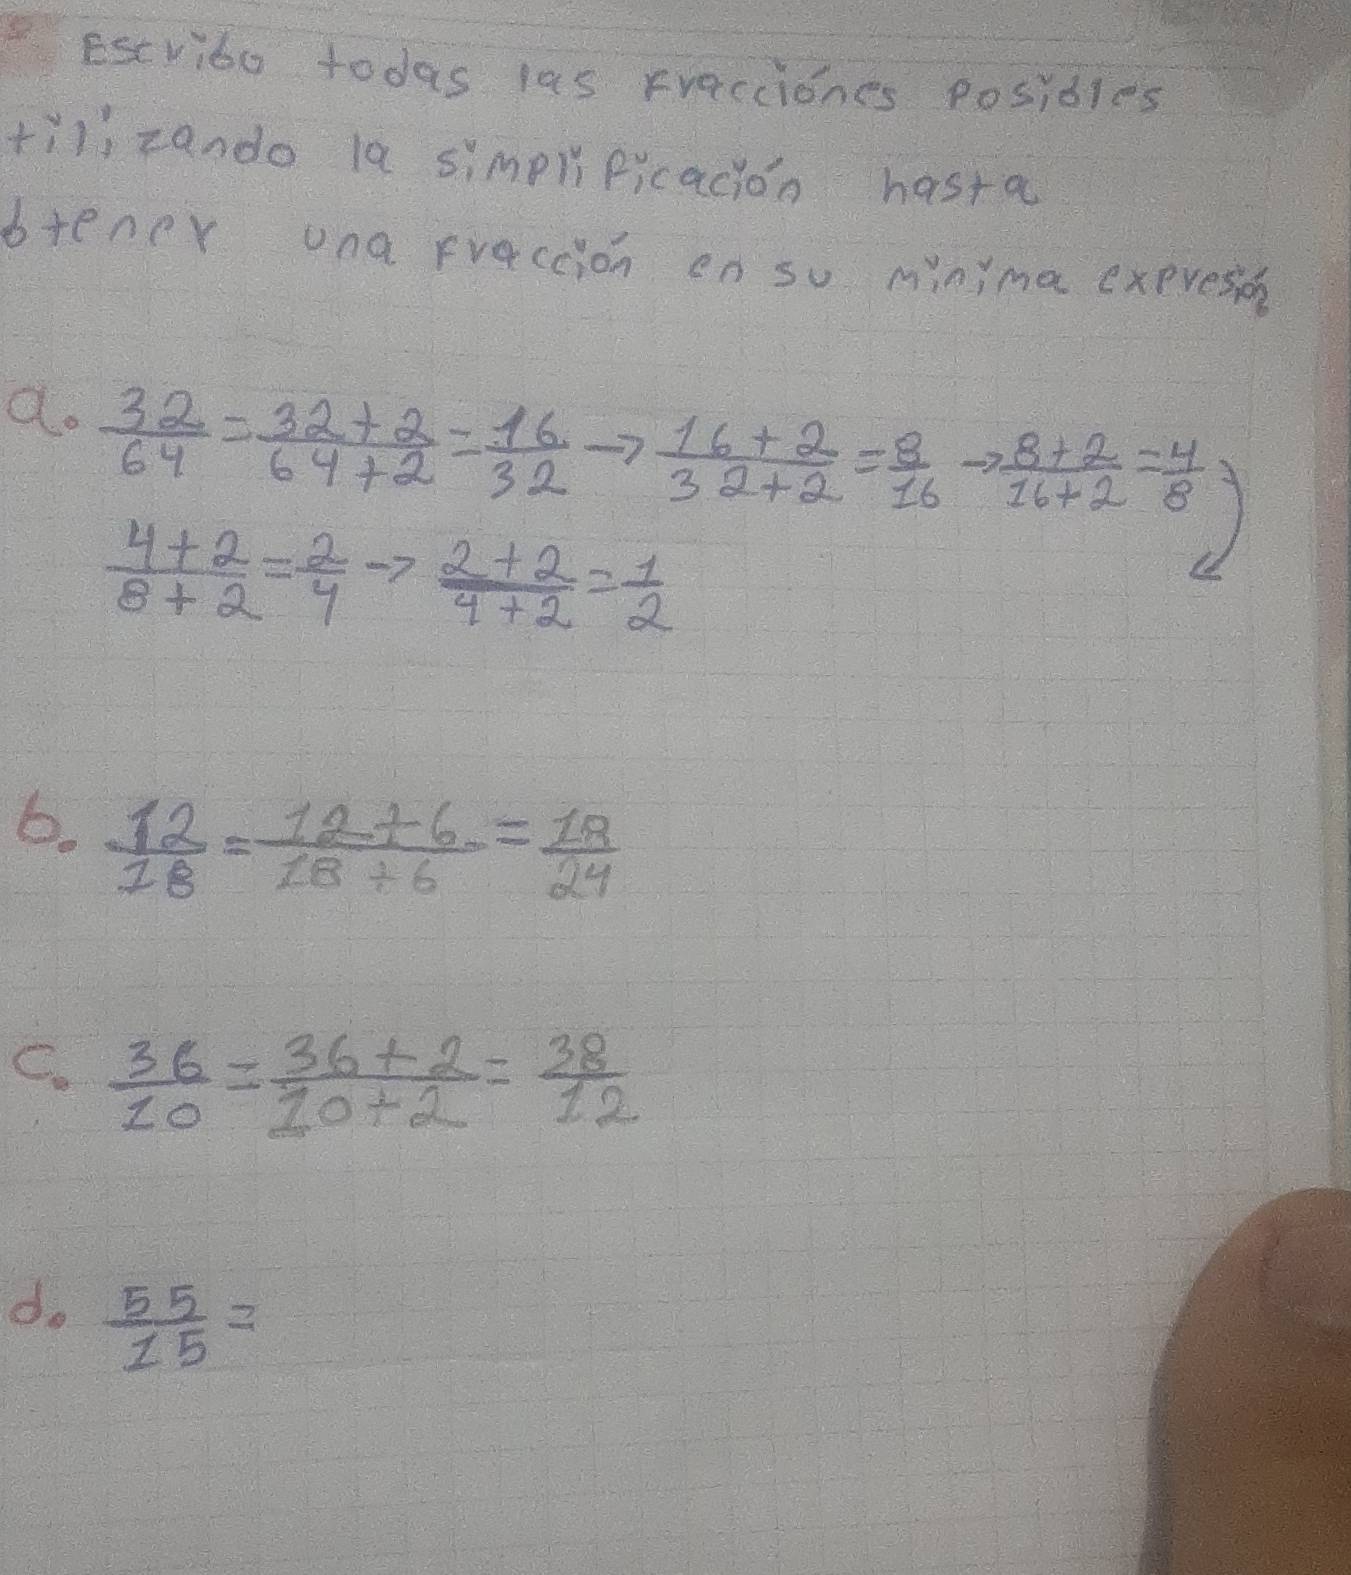 Escribo todas las fracciónes posibles
tilizando la simplificación hasta
btener una fracción en su minima expresión
a. 32/64 = 32+2/64+2 = 16/32 → 16+2/32+2 = 8/16 → 8+2/16+2 = 4/8
4+2/8+2 = 2/4 → 2+2/4+2 = 1/2
b. 12/18 = 12÷6/18÷6 = 18/24
c. 36/10 = 36+2/10+2 = 38/12
d. 55/15 =